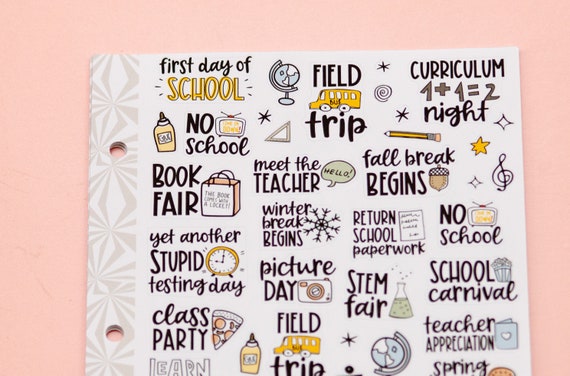 first day of
SCHOOL
FIELD
trip
CURRICULUM
1+1=2
night
NO
School
meet the
TEACHER
HELLO!
fall break
BEGINS
BOOK
FAIR
THIS BOOK
COMES WITH
A LOCKET!
winter
break
BEGINS
RETURN
SCHOOL
paperwork
NO
SCHOOL
yet another
STUPID
testing day
picture
DAY
STEM
fair
SCHOOL
carnival
class
PARTY
FIELD
teacher
APPRECIATION
LEARN
spring